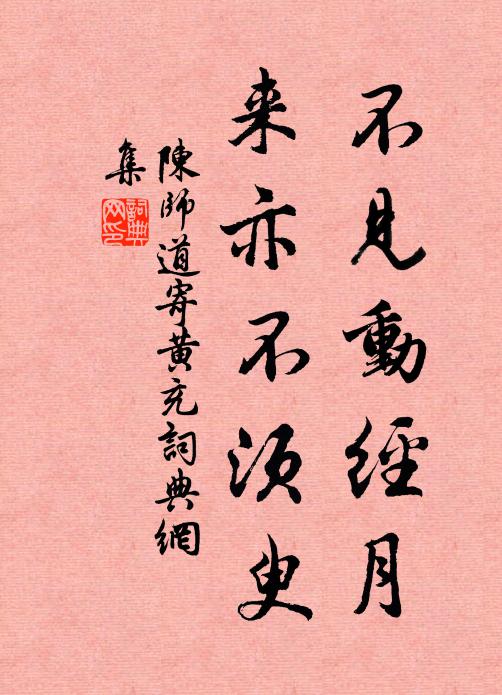 不見動經月
来亦不須臾
陳師道寄黄充詞典網
集
詞典
网印